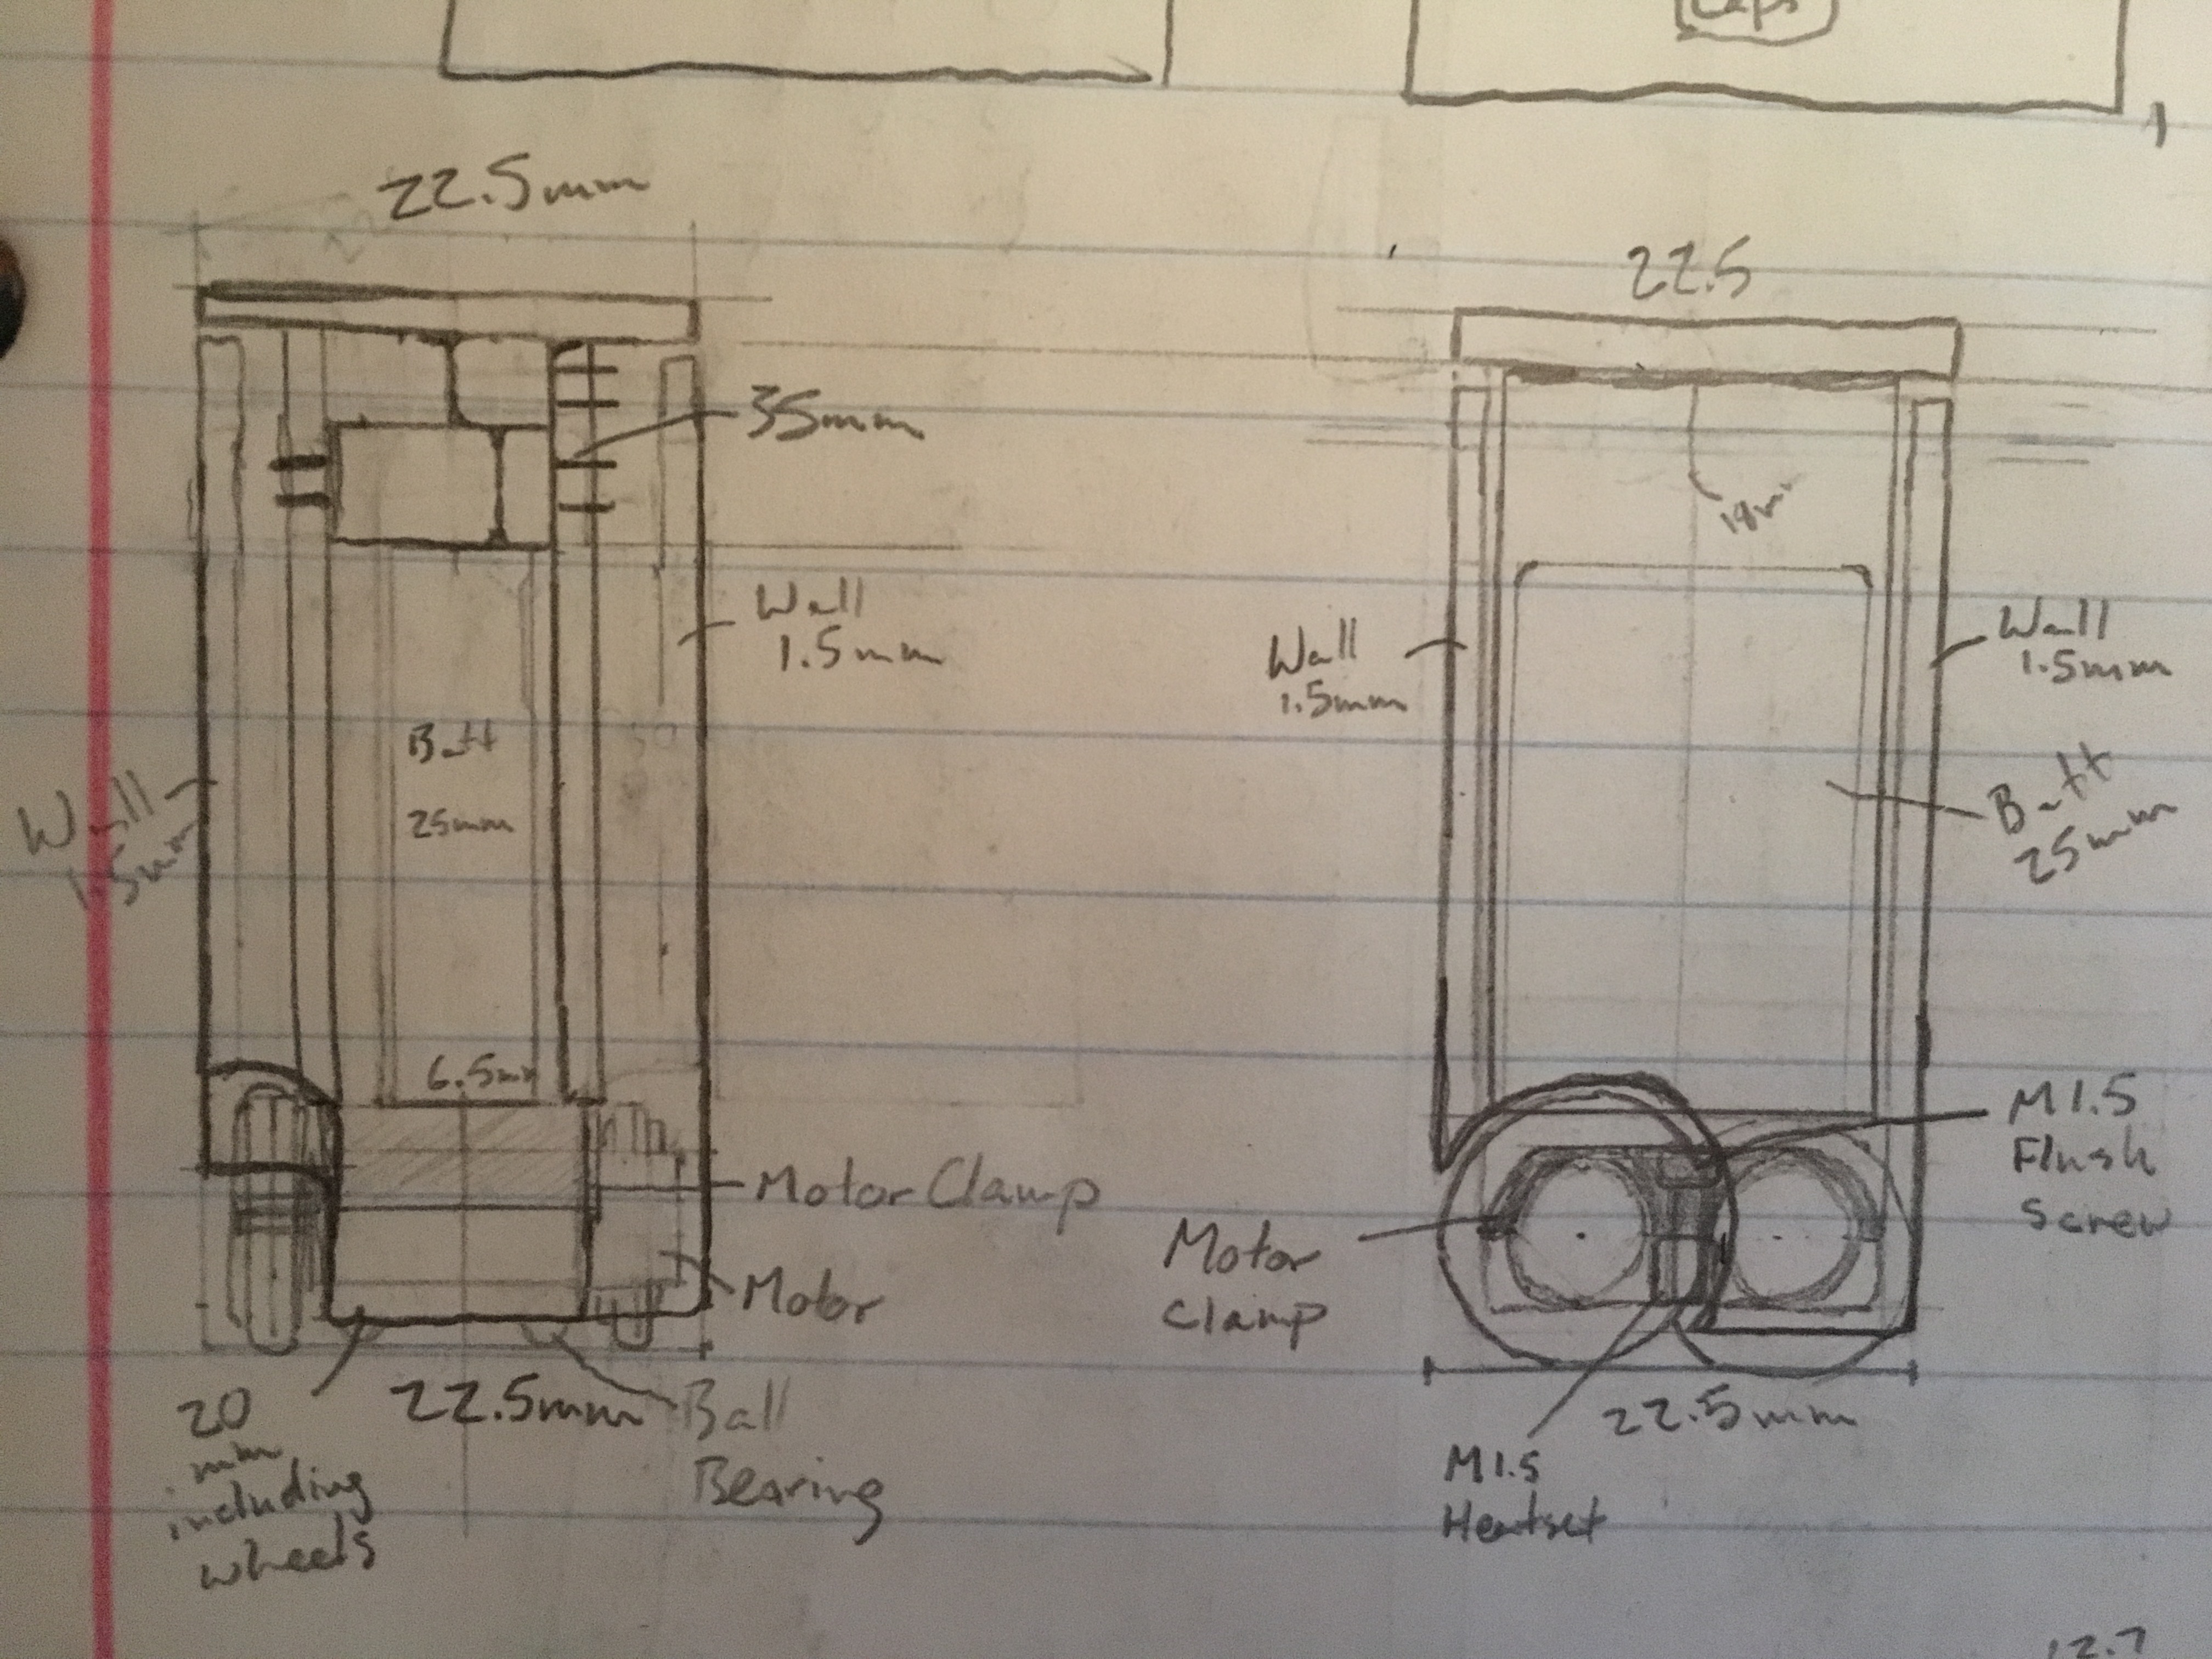 Caps
22.5mm
35mm
Wall
1.5mm
Wall
1.5mm
Batt
25mm
6.5mm
Motor Clamp
Motor
20
mm
including
wheels
22.5mm
Ball
Bearing
22.5
18mm
Wall
1.5mm
Wall
1.5mm
Batt
25mm
M1.5
Flush
Screw
Motor
Clamp
22.5mm
M1.5
Heatset
12.7